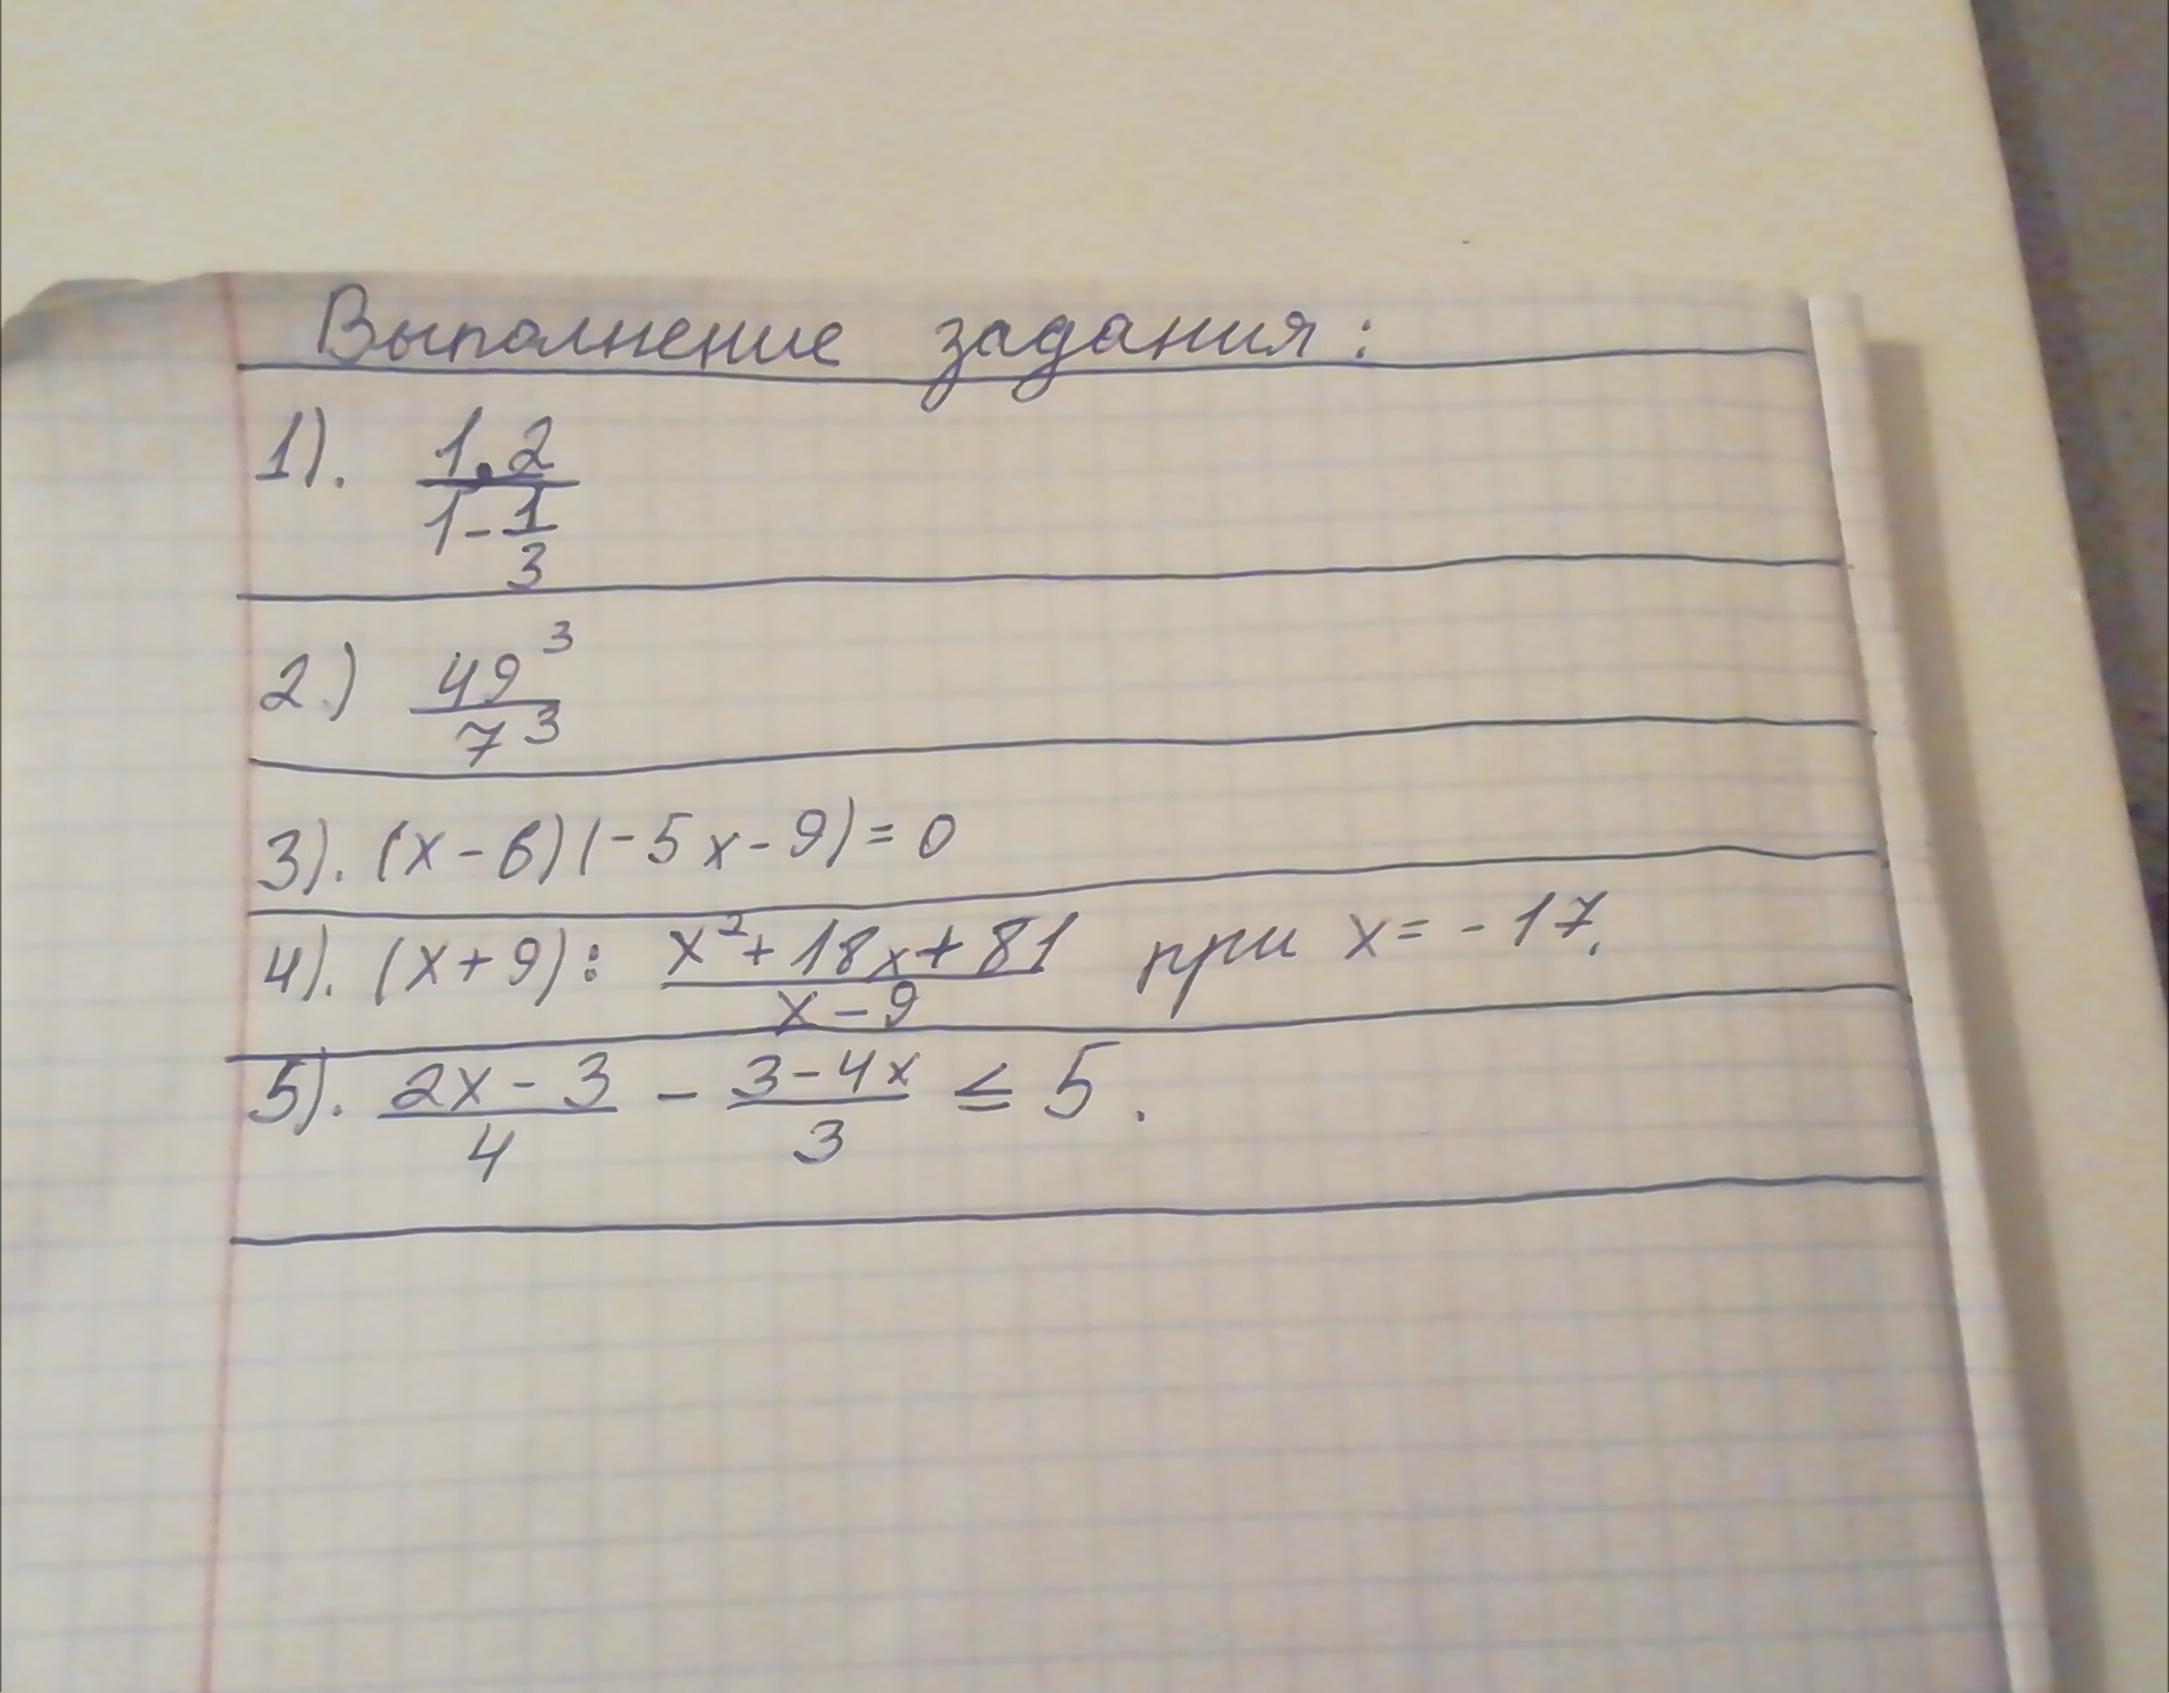 Выполнение задания:
1). 1.2 / (1 - 1/3)
2.) 49³ / 7³
3). (x - 6)(-5x - 9) = 0
4). (x + 9) : (x² + 18x + 81) / (x - 9) при x = -17.
5). (2x - 3) / 4 - (3 - 4x) / 3 ≤ 5.